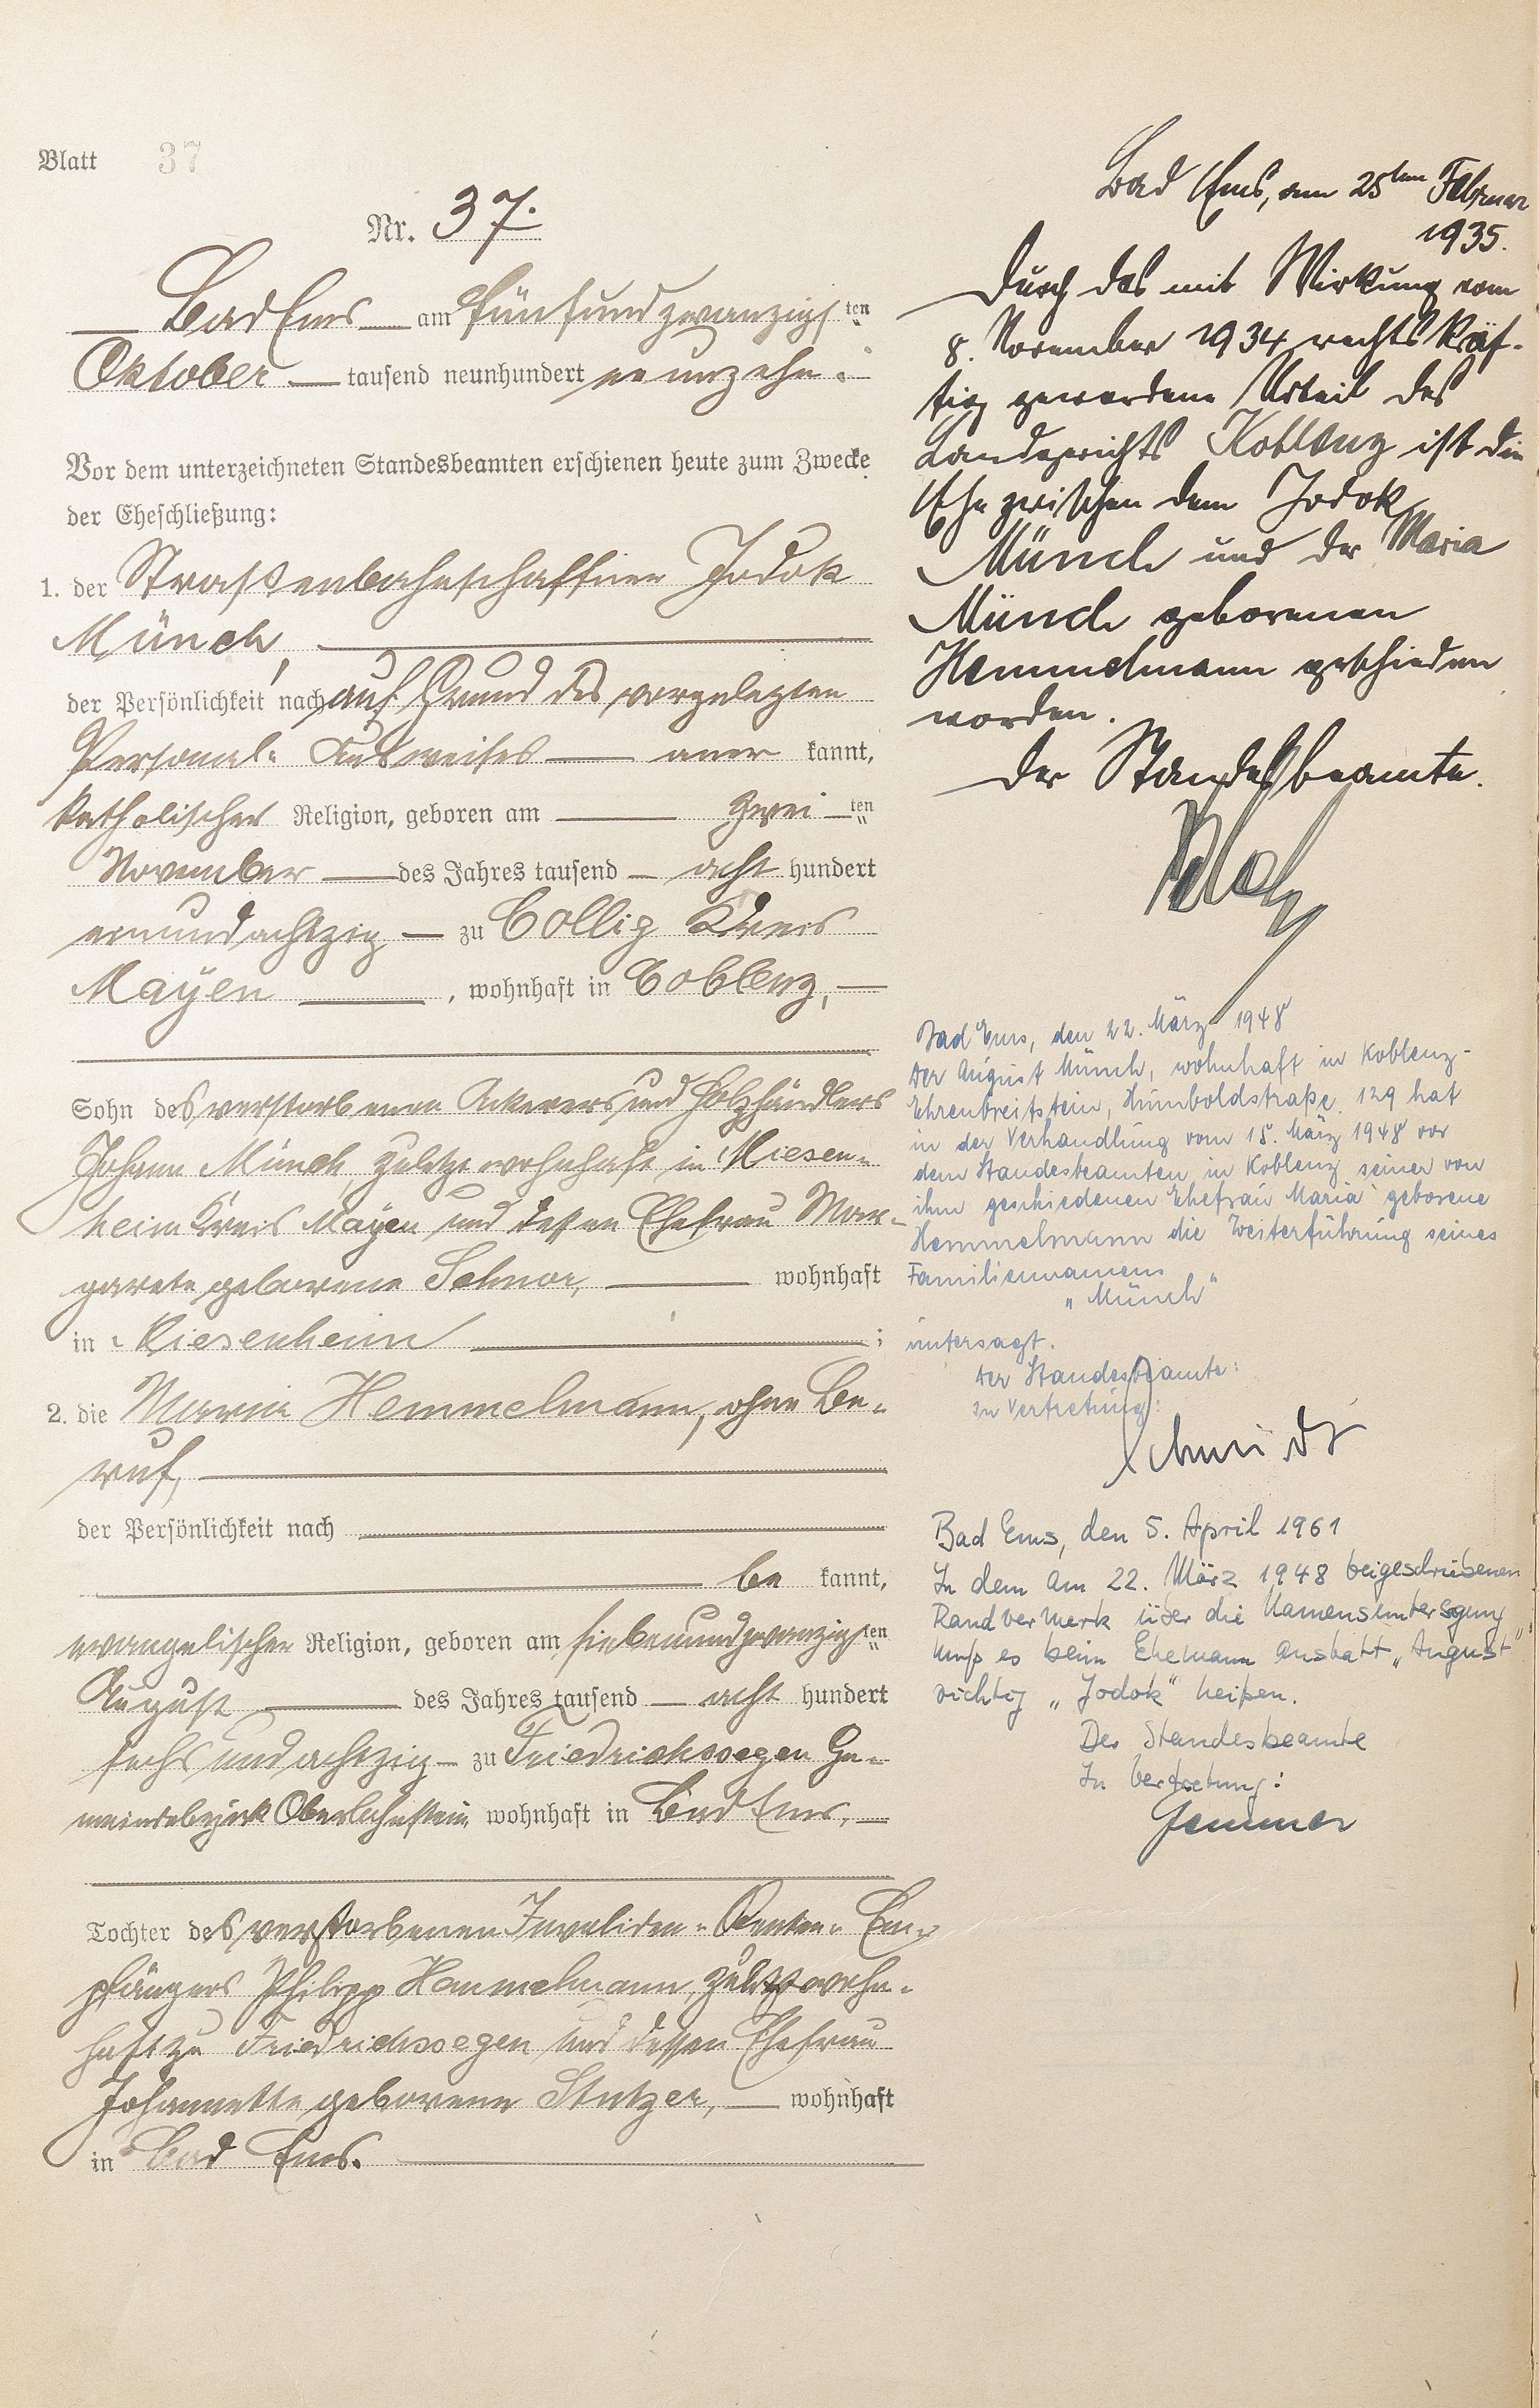 Blatt 37
Nr. 37.
Bad Ems am fünfundzwanzigsten
Oktober tausend neunhundert neunzehn.
Vor dem unterzeichneten Standesbeamten erschienen heute zum Zwecke
der Eheschließung:
1. der Straßenbahnschaffner Jodok
Münch,
der Persönlichkeit nach auf Grund des vorgelegten
Personal-Ausweises aner kannt,
katholischer Religion, geboren am zwei ten
November des Jahres tausend acht hundert
einundachtzig zu Collig Kreis
Mayen, wohnhaft in Coblenz,
Sohn des verstorbenen Ackerers und Holzhändlers
Johann Münch, zuletzt wohnhaft in Miesen-
heim Kreis Mayen und dessen Ehefrau Mar-
garete geborene wohnhaft
in Miesenheim;
2. die Maria Hemmelmann, ohne Be-
ruf,
der Persönlichkeit nach
be kannt,
evangelischer Religion, geboren am siebenundzwanzigsten
August des Jahres tausend acht hundert
sechsundachtzig zu Friedrichssegen Ge-
meindebezirk Oberlahnstein, wohnhaft in Bad Ems,
Tochter des verstorbenen Invaliden-Renten-Em-
pfängers Philipp Hemmelmann, zuletzt wohn-
haft zu Friedrichssegen und dessen Ehefrau
Johannette geborene Stutzer, wohnhaft
in Bad Ems.
Bad Ems, am 25ten Februar
1935.
Durch das mit Wirkung vom
8. November 1934 rechtskräf-
tig gewordene Urteil des
Landgerichts Koblenz ist die
Ehe zwischen dem Jodok
Münch und der Maria
Münch geborenen
Hemmelmann geschieden
worden.
Der Standesbeamte.
Bad Ems, den 22. März 1948
Der August Münch, wohnhaft in Koblenz-
Ehrenbreitstein, Humboldstraße 129 hat
in der Verhandlung vom 15. März 1948 vor
dem Standesbeamten in Koblenz seiner von
ihm geschiedenen Ehefrau Maria geborene
Hemmelmann die Weiterführung seines
Familiennamens
„Münch"
untersagt.
Der Standesbeamte:
In Vertretung:
Schmidt
Bad Ems, den 5. April 1961
In dem am 22. März 1948 beigeschriebenen
Randvermerk über die Namensuntersagung
muß es beim Ehemann anstatt „August"
richtig „Jodok" heißen.
Der Standesbeamte
In Vertretung:
Jemmer